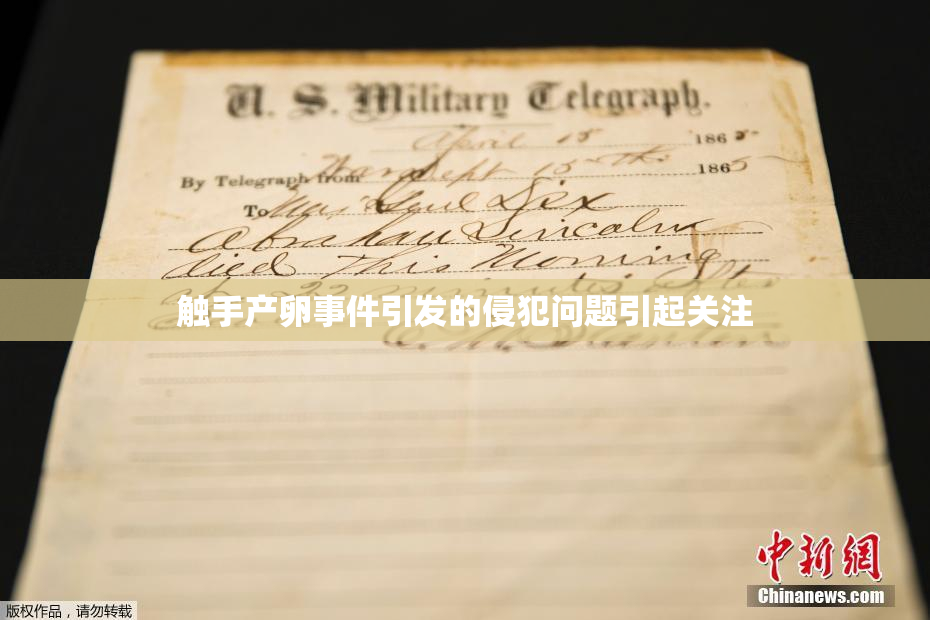 U. S. Military Telegraph.
April 15 1865
By Telegraph from War Dept 15th 1865
To Maj Genl Dix
Abraham Lincoln
died This Morning
at 22 minutes after
触手产卵事件引发的侵犯问题引起关注
E. M. Stanton
中新網
Chinanews.com
版权作品，请勿转载